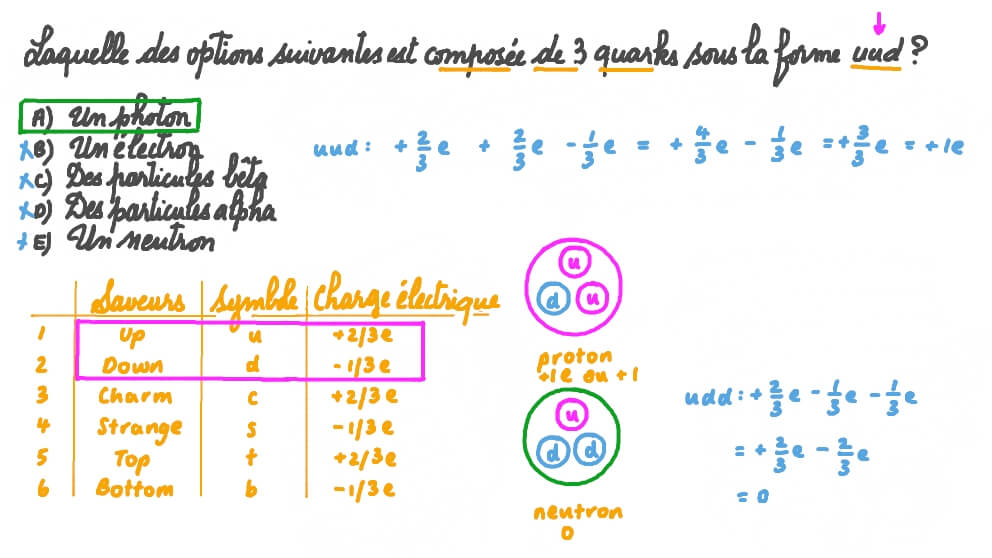 Laquelle des options suivantes est composée de 3 quarks sous la forme uud ?
A) Un photon
B) Un électron
C) Des particules bêta
D) Des particules alpha
E) Un neutron
uud : + 2/3 e + 2/3 e - 1/3 e = + 4/3 e - 1/3 e = + 3/3 e = +1e
Saveurs | symbole | Charge électrique
1 Up u +2/3 e
2 Down d -1/3 e
3 Charm c +2/3 e
4 Strange s -1/3 e
5 Top t +2/3 e
6 Bottom b -1/3 e
u
d u
proton
+1e ou +1
u
d d
neutron
0
udd : + 2/3 e - 1/3 e - 1/3 e
= + 2/3 e - 2/3 e
= 0